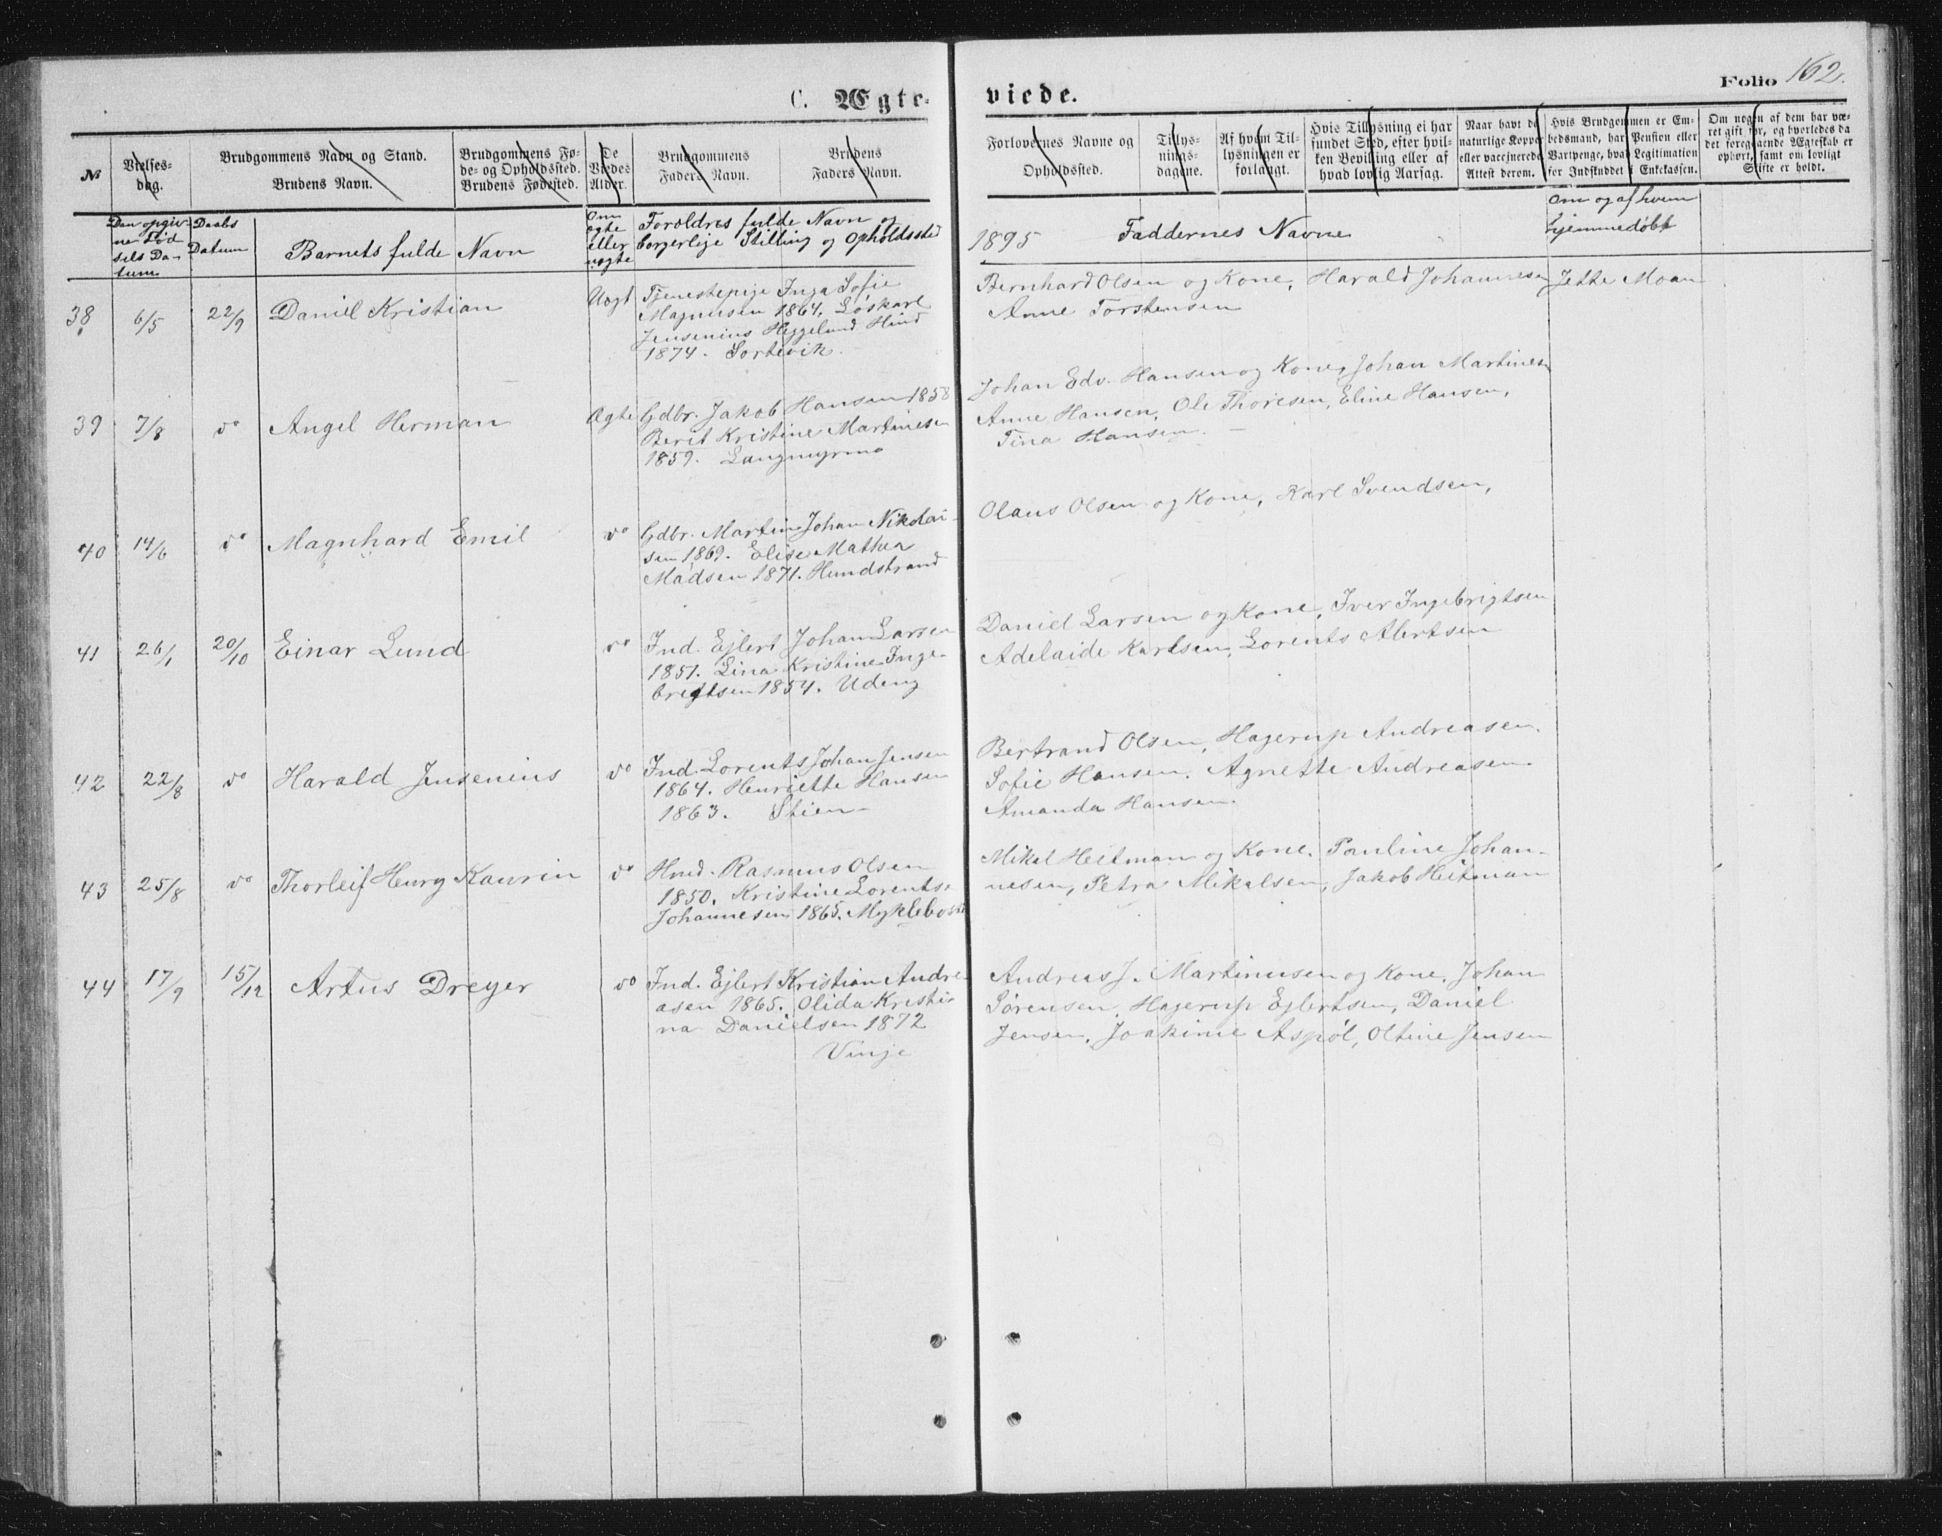 C. Ægte-
viede.
Folio 162.
№
Vielses-
dag.
Brudgommens Navn og Stand.
Brudens Navn.
Brudgommens Fø-
de- og Opholdssted.
Brudens Fødested.
De
Viedes
Alder.
Brudgommens
Faders Navn.
Brudens
Faders Navn.
Forlovernes Navne og
Opholdssted.
Tillys-
nings-
dagene.
Af hvem Til-
lysningen er
forlangt.
Hvis Tillysning ei har
fundet Sted, efter hvil-
ken Bevilling eller af
hvad lovlig Aarsag.
Naar havt de
naturlige Kopper
eller vaccinerede,
Attest derom.
Hvis Brudgommen er Em-
bedsmand, har Pension eller
Vartpenge, hvad Legitimation
for Indskuddet i Enkekassen.
Om nogen af dem har væ-
ret gift før, og hvorledes da
det foregaaende Ægteskab er
ophørt, samt om lovligt
Skifte er holdt.
Den opgiv-
ne Fød
sels Da-
tum
Daabs
Datum
Barnets fulde Navn
Om
ægte
eller
uægte
Forældres fulde Navn og
borgerlige Stilling og Opholdssted
1895
Faddernes Navne
Om og af hvem
hjemmedøbt
38 6/5 22/9 Daniel Kristian Uægt
Tjenestepige Inga Sofie
Magnusen 1864. Løskarl
Jensenius Heggelund Hind
1874. Sortevik.
Bernhard Olsen og Kone, Harald Johannesen
Anne Torstensen
Jette Moan
39 7/8 do Angel Herman Ægte
Gdbr. Jakob Hansen 1858
Berit Kristine Martinesen
1859. Langmyrmo
Johan Edv. Hansen og Kone, Johan Martinesen
Anne Hansen, Ole Thoresen, Eline Hansen,
Tina Hansen. –
40 14/6 do Magnhard Emil do
Gdbr. Martin Johan Nikolai-
sen 1869. Elise Mathea
Madsen 1871. Hundstrand
Olaus Olsen og Kone, Karl Svendsen,
41 26/1 20/10 Einar Lund do
Ind. Ejlert Johan Larsen
1851. Lina Kristine Inge-
brigtsen 1854. Udeng
Daniel Larsen og Kone, Iver Ingebrigtsen
Adelaide Karlsen, Lorents Albertsen
42 22/8 do Harald Jensenius do
Ind. Lorents Johan Jensen
1864. Henriette Hansen
1863. Stien–
Bertrand Olsen, Hagerup Andreasen.
Sofie Hansen. Agnette Andreasen.
Amanda Hansen.
43 25/8 do Thorleif Henry Kaurin do
Hmd. Rasmus Olsen
1850. Kristine Lorents.
Johannesen 1865. Myklebost
Mikal Heitman og Kone. Pauline Johan-
nesen, Petra Mikalsen, Jakob Heitman
44 17/9 15/12 Artus Dreyer do
Ind. Ejlert Kristian Andre-
asen 1865. Olida Kristi-
na Danielsen 1872
Vinje
Andreas J. Martinusen og Kone, Johan
Sørensen, Hagerup Ejlertsen, Daniel
Jensen, Joakime Aspøl, Oltine Jensen